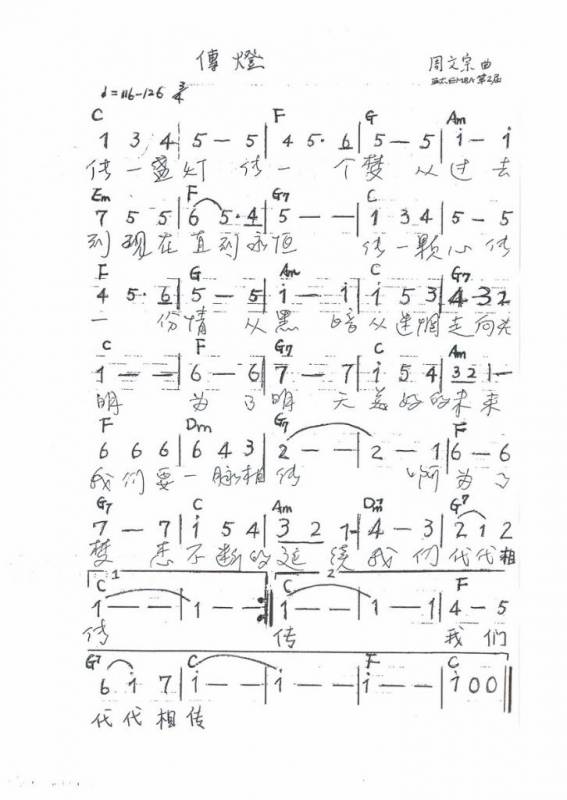 傳燈
周文宗曲
♩=116-126 3/4
C F G Am
1 3 4 | 5 — 5 | 4 5· 6 | 5 — 5 | i — i
传一盏灯 传一 个梦 从过去
Em F G7 C
7 5 5 | 6 5·4 | 5 — — | 1 3 4 | 5 — 5
到现在直到永恒 传一颗心传
F G Am C G7
4 5· 6 | 5 — 5 | i — i | i 5 3 | 4 3 2
一 份情 从黑 暗从迷惘走向光
C F G7 C Am
1 — — | 6 — 6 | 7 — 7 | i 5 4 | 3 2 1 —
明 为了明 天美好的未来
F Dm G7 F
6 6 6 | 6 4 3 | 2 — — | 2 — 1 | 6 — 6
我们要一脉相传 啊为了
G7 C Am Dm7 G7
7 — 7 | i 5 4 | 3 2 1· | 4 — 3 | 2 1 2
梦 想不断的延续我们代代相
1 2
C C F
1 — — | 1 — — :| 1 — — | 1 — 1 | 4 — 5
传 传 我们
G7 C F C
6 i 7 | i — — | i — — | i — — | i 0 0 ‖
代代相传